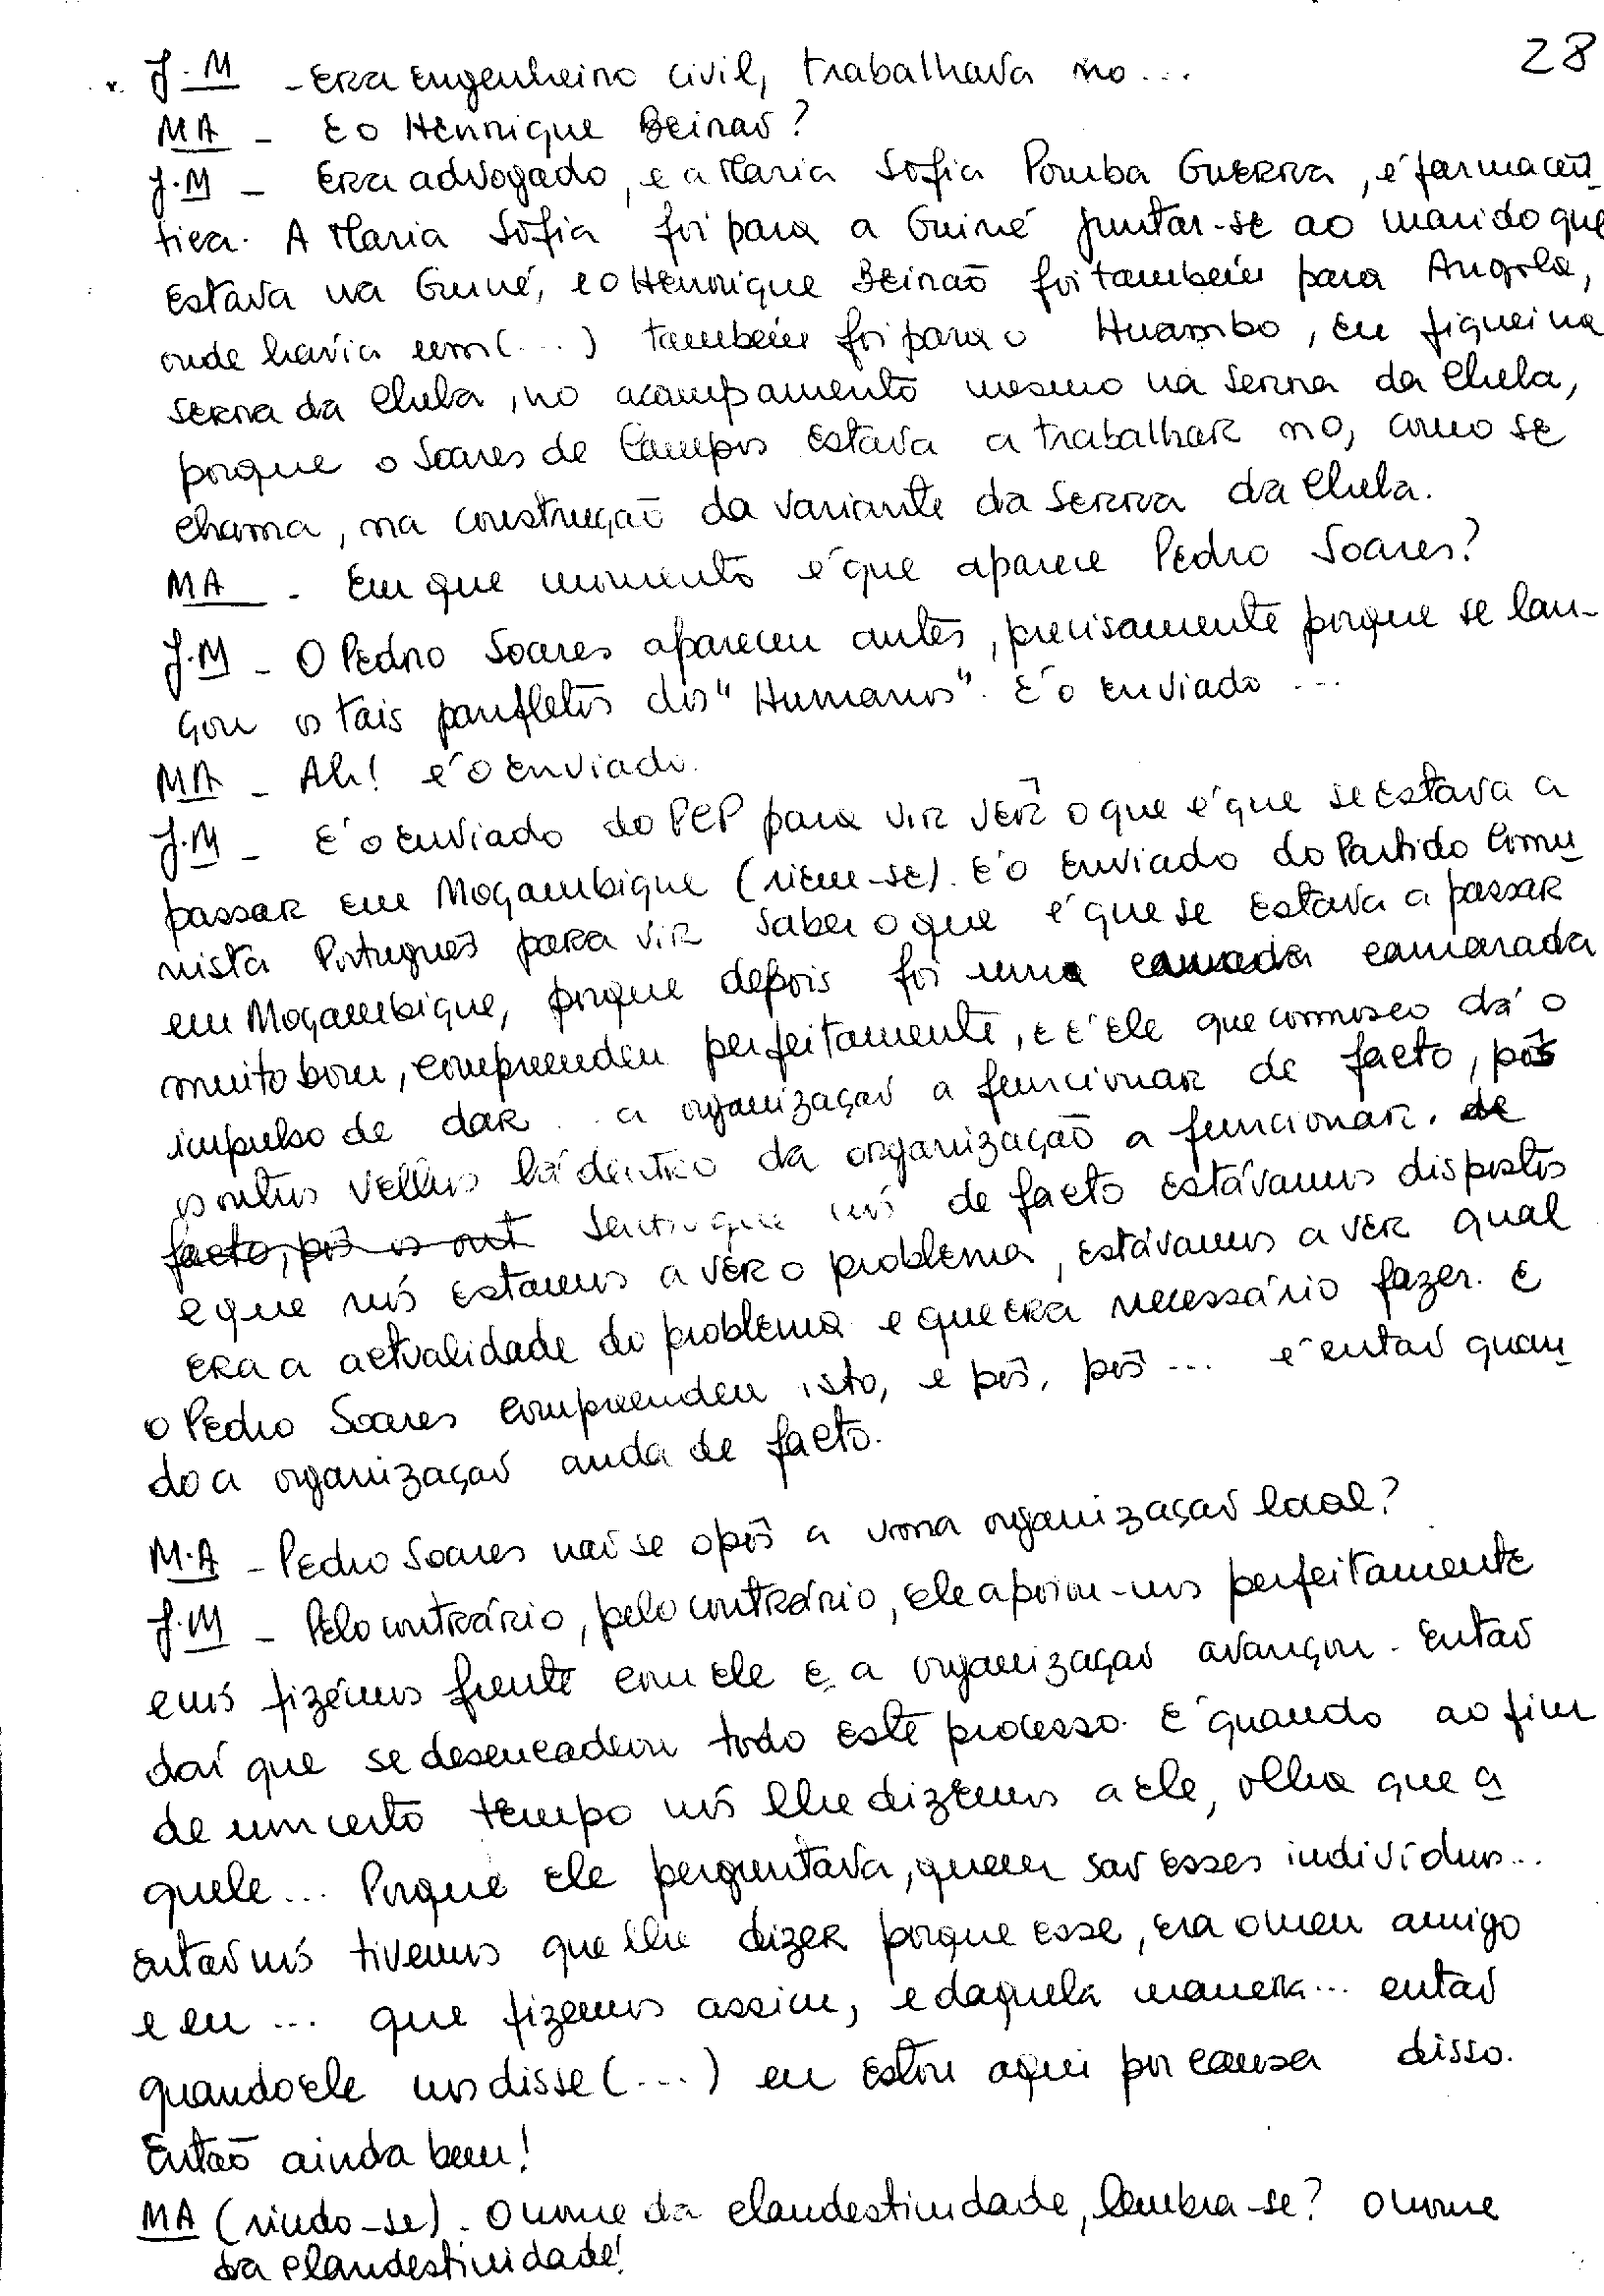 28
J.M - Era engenheiro civil, trabalhava no ...
MA - E o Henrique Beirão?
J.M - Era advogado, e a Maria Sofia Pomba Guerra, é farmacêu
tica. A Maria Sofia foi para a Guiné juntar-se ao marido que
estava na Guiné, e o Henrique Beirão foi também para Angola,
onde havia um (...) também foi para o Huambo, eu fiquei na
serra da Chela, no acampamento mesmo na serra da Chela,
porque o Soares de Campos estava a trabalhar no, como se
chama, na construção da variante da Serra da Chela.
MA - Em que momento é que aparece Pedro Soares?
J.M - O Pedro Soares apareceu antes, precisamente porque se lan-
çou os tais panfletos dos "Humanos". E' o enviado ...
MA - Ah! é o enviado.
J.M - E' o enviado do PCP para vir vêr o que é que se estava a
passar em Moçambique (riem-se). E' o enviado do Partido Comu
nista Português para vir saber o que é que se estava a passar
em Moçambique, porque depois foi um camarada
muito bom, compreendeu perfeitamente, e é ele que connosco dá o
impulso de dar a organização a funcionar de facto, pôs
os outros velhos lá dentro da organização a funcionar. de
facto, pôs os out Sentiu que nós de facto estávamos dispostos
e que nós estamos a vêr o problema, estávamos a ver qual
era a actualidade do problema e que era necessário fazer. E
o Pedro Soares compreendeu isto, e pôs, pôs ... é então quan
do a organização anda de facto.
M.A - Pedro Soares não se opôs a uma organização local?
J.M - Pelo contrário, pelo contrário, ele apoiou-nos perfeitamente
e nós fizémos frente com ele e a organização avançou. Então
daí que se desencadeou todo este processo. E' quando ao fim
de um certo tempo nós lhe dizemos a ele, olha que a
quele ... Porque ele perguntava, quem são esses indivíduos ...
então nós tivemos que lhe dizer porque esse, era o meu amigo
e eu ... que fizemos assim, e daquela maneira ... então
quando ele nos disse (...) eu estou aqui por causa disso.
Então ainda bem!
MA (rindo-se). O nome da clandestinidade, lembra-se? O nome
da clandestinidade!